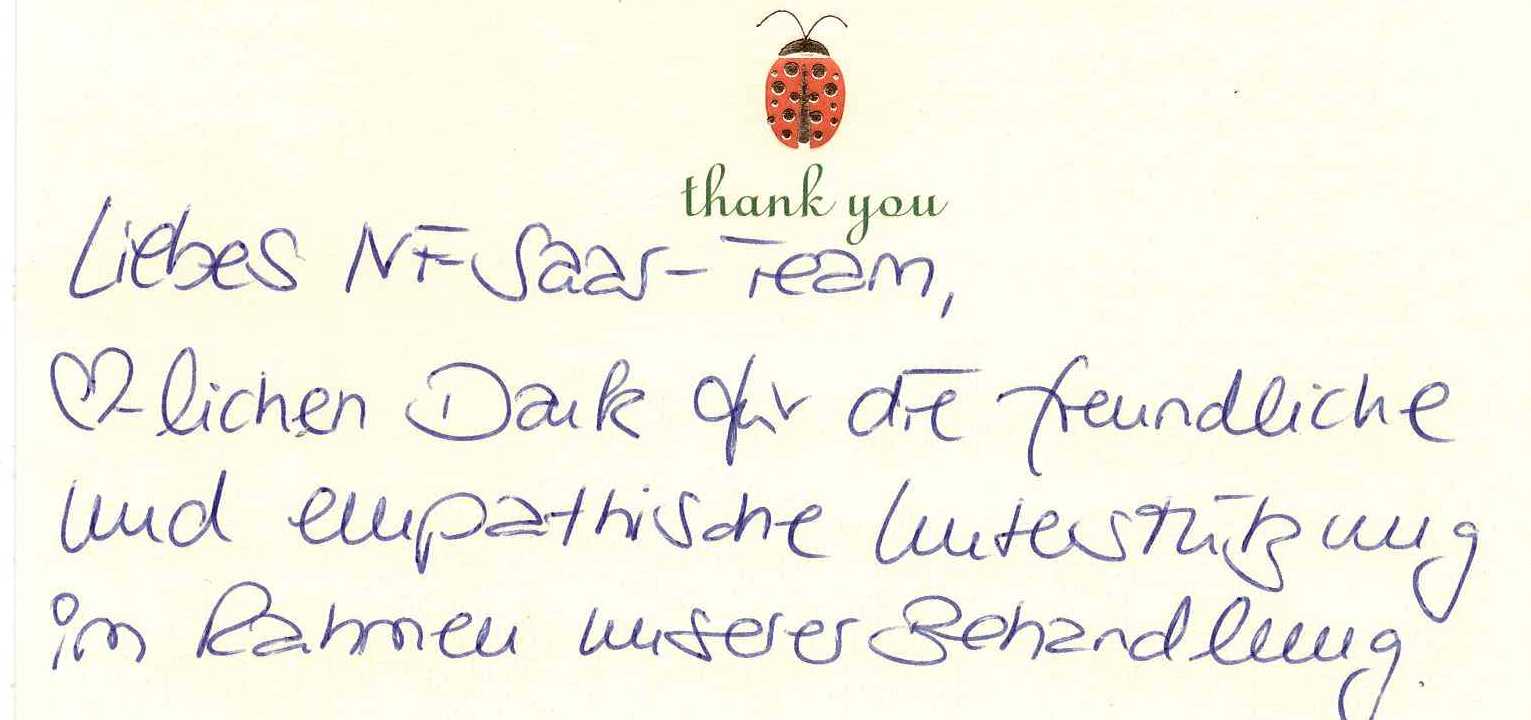 thank you
Liebes NF-Saar-Team,
♡-lichen Dank für die freundliche
und empathische Unterstützung
im Rahmen unserer Behandlung.